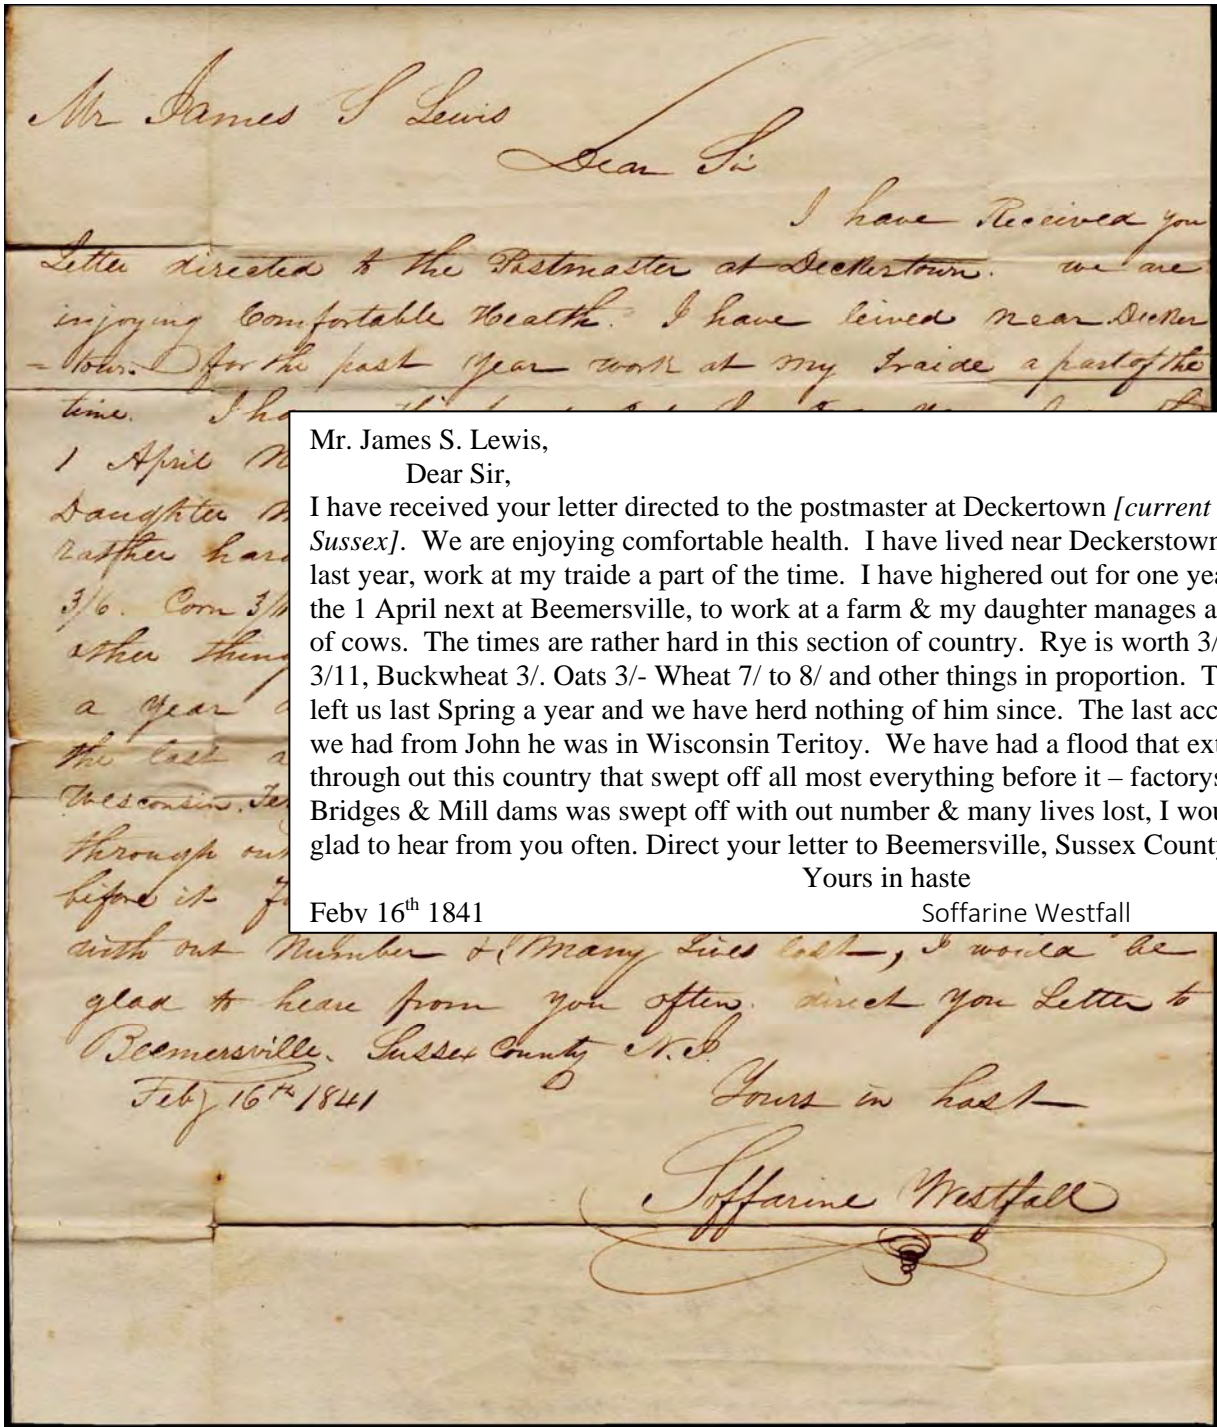 Mr James S Lewis
Dear Sir
I have Received you
Letter directed to the Postmaster at Deckertown. we are
injoying Comfortable Health. I have leived near Decker
= town. for the past year work at my Traide a part of the
time. I
1 April
Daughter
rather hard
3/6. Corn
other thing
a year
the last a
Wisconsin. Ter
through out
before it
with out Number & Many Lives lost, I would be
glad to heare from you often. direct you Letter to
Beemersville. Sussex County N.J.
Feby 16th 1841 Yours in hast
Soffarine Westfall
Mr. James S. Lewis,
Dear Sir,
I have received your letter directed to the postmaster at Deckertown [current
Sussex]. We are enjoying comfortable health. I have lived near Deckerstown
last year, work at my traide a part of the time. I have highered out for one yea
the 1 April next at Beemersville, to work at a farm & my daughter manages a
of cows. The times are rather hard in this section of country. Rye is worth 3/
3/11, Buckwheat 3/. Oats 3/- Wheat 7/ to 8/ and other things in proportion. T
left us last Spring a year and we have herd nothing of him since. The last acc
we had from John he was in Wisconsin Teritoy. We have had a flood that ext
through out this country that swept off all most everything before it – factorys
Bridges & Mill dams was swept off with out number & many lives lost, I wou
glad to hear from you often. Direct your letter to Beemersville, Sussex County
Yours in haste
Feby 16th 1841 Soffarine Westfall